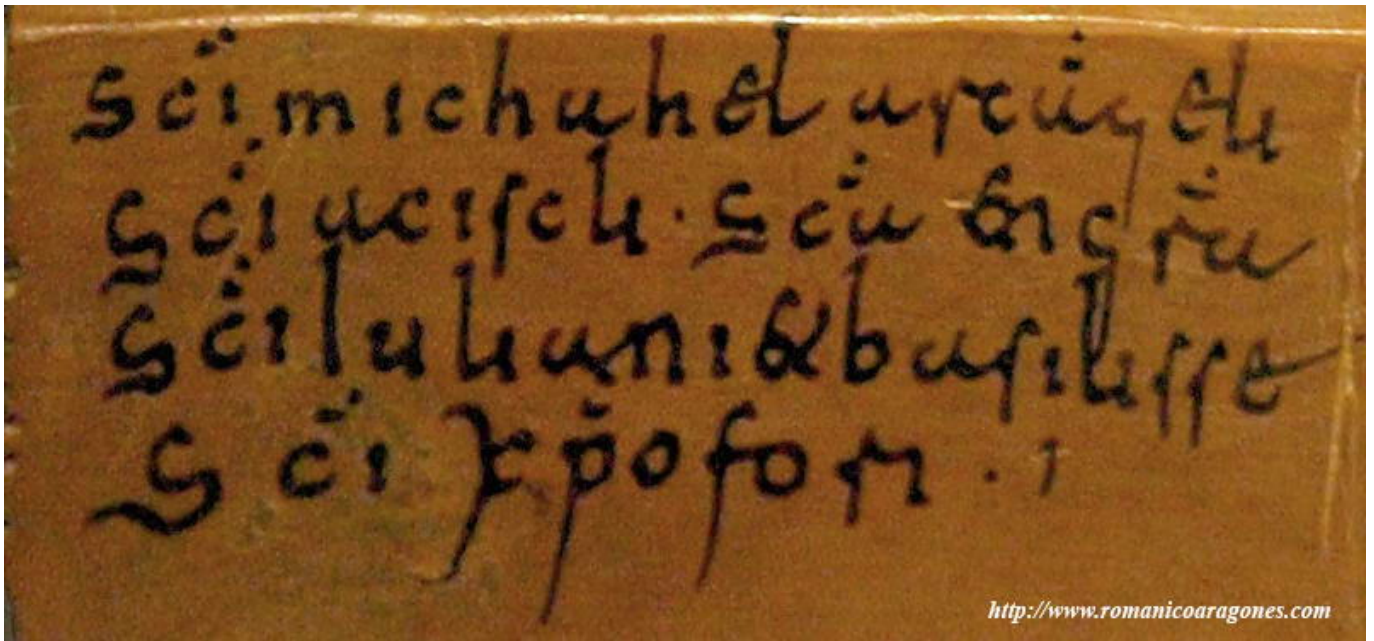 Sc̄i michahel arcāgeli
Sc̄i aciscli · Sc̄a engr̄a
Sc̄i Iuliani & basilisse
Sc̄i xp̄ofori ·
http://www.romanicoaragones.com